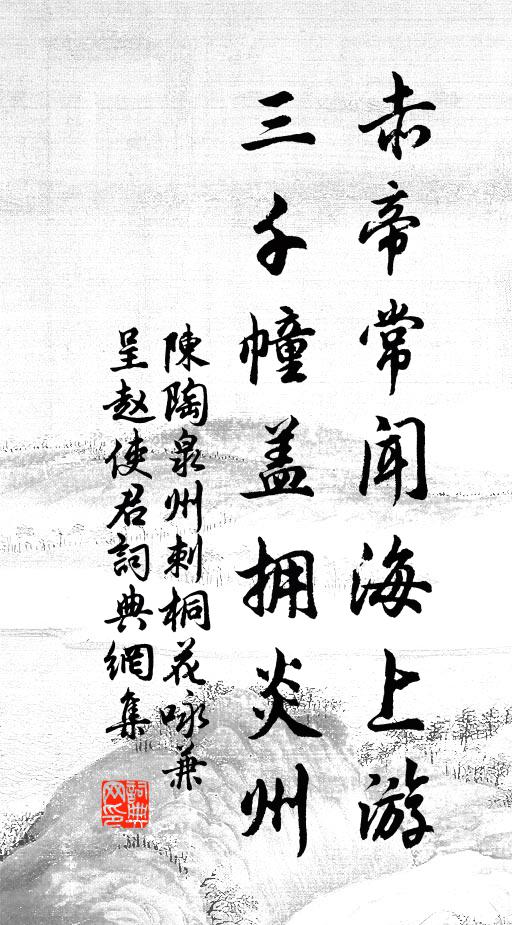 赤帝常闻海上游
三千幢盖拥炎州
陳陶泉州刺桐花咏兼
呈赵使君詞典網集
詞典
网印